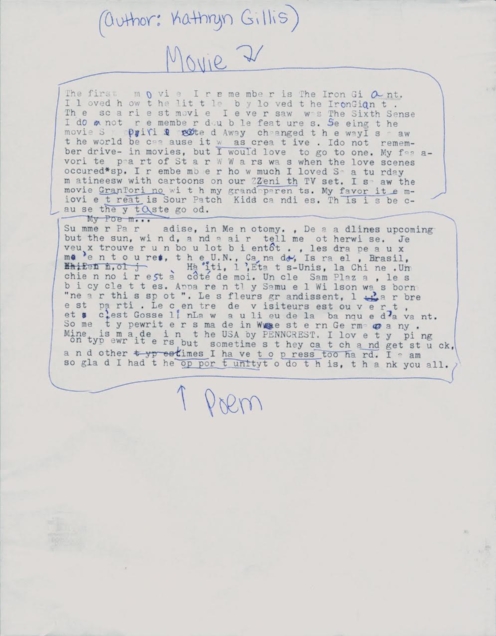 (Author: Kathryn Gillis)
Movie
The first movie I remember is The Iron Giant.
I loved how the little boy loved the IronGiant.
The scariest movie I ever saw was The Sixth Sense
I do not remember double features. Seeing the
movie Spirited Away changed the way I saw
the world because it was creative. I do not remem-
ber drive- in movies, but I would love to go to one. My fa-
vorite part of Star Wars was when the love scenes
occured*sp. I remember how much I loved Saturday
matineesw with cartoons on our "Zenith TV set. I saw the
movie GranTorino with my grandparents. My favorite m-
iovie treat is Sour Patch Kidd candies. This is bec-
ause they taste good.
My Poem...
Summer Paradise, in Menotomy., Deaadlines upcoming
but the sun, wind, and air tell me otherwise. Je
veux trouver un boulot bientôt. . les drapeaux
m'entoures, the U.N., Canada, Israel, Brasil,
Haiti, l'Etats-Unis, la Chine .Un
chien noir est a côté de moi. Uncle Sam Plaza, les
bicyclettes. Apparently Samuel Wilson was born
"near this spot". Les fleurs grandissent, l'arbre
est parti. Le centre de visiteurs est ouvert,
et c'est Gosselin Lew au lieu de la banque d'avant.
Some typewriters made in Western Germany.
Mine is made in the USA by PENNCREST. I love typing
on typewriters but sometimes they catch and get stuck,
and other typestimes I have to press too hard. I am
so glad I had the opportunityt o do this, thank you all.
Poem